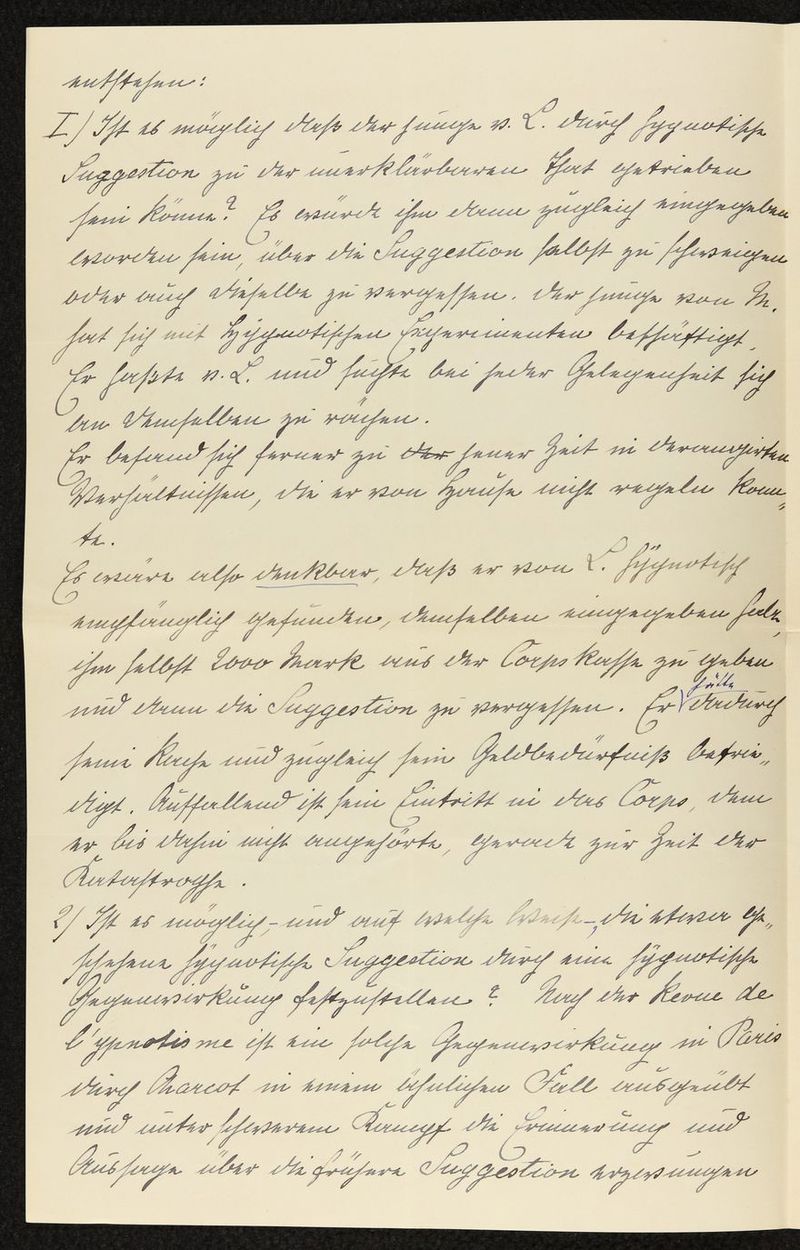 entstehen:
I) Ist es möglich daß der junge v. L. durch hypnotische
Suggestion zu der unerklärbaren That getrieben
sein könne? Es würde ihm dann zugleich eingegeben
worden sein, über die Suggestion selbst zu schweigen
oder auch dieselbe zu vergessen. Der junge von M.
hat sich mit hypnotischen Experimenten beschäftigt,
Er haßte v. L. und suchte bei jeder Gelegenheit sich
an demselben zu rächen.
Er befand sich ferner zu der jener Zeit in derangirten
Verhältnissen, die er von Hause nicht regeln konn„
te.
Es wäre also denkbar, daß er von L. hypnotisch
empfänglich gefunden, demselben eingegeben habe,
ihm selbst 2000 Mark aus der Corpskasse zu geben
und dann die Suggestion zu vergessen. Er hätte dadurch
seine Rache und zugleich sein Geldbedürfniß befrie„
digt. Auffallend ist sein Eintritt in das Corps, dem
er bis dahin nicht angehörte, gerade zur Zeit der
Katastrophe.
2) Ist es möglich,- und auf welche Weise-, die etwa ge„
schehene hypnotische Suggestion durch eine hypnotische
Gegenwirkung festzustellen? Nach der Revue de
l'ypnotisme ist ein solche Gegenwirkung in Paris
durch Charcot in einem ähnlichen Fall ausgeübt
und unter schwerem Kampf die Erinnerung und
Aussage über die frühere Suggestion erzwungen